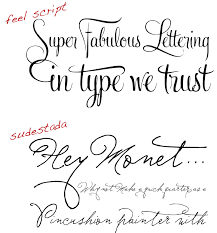 feel script
Super Fabulous Lettering
in type we trust
sudestada
Hey Monet...
Why not Make a such painter as a
Pincushion painter with